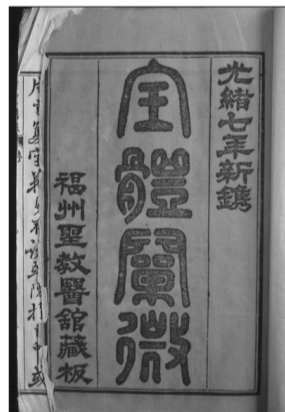 光緒七年新鐫
全體闡微
福州聖教醫館藏板